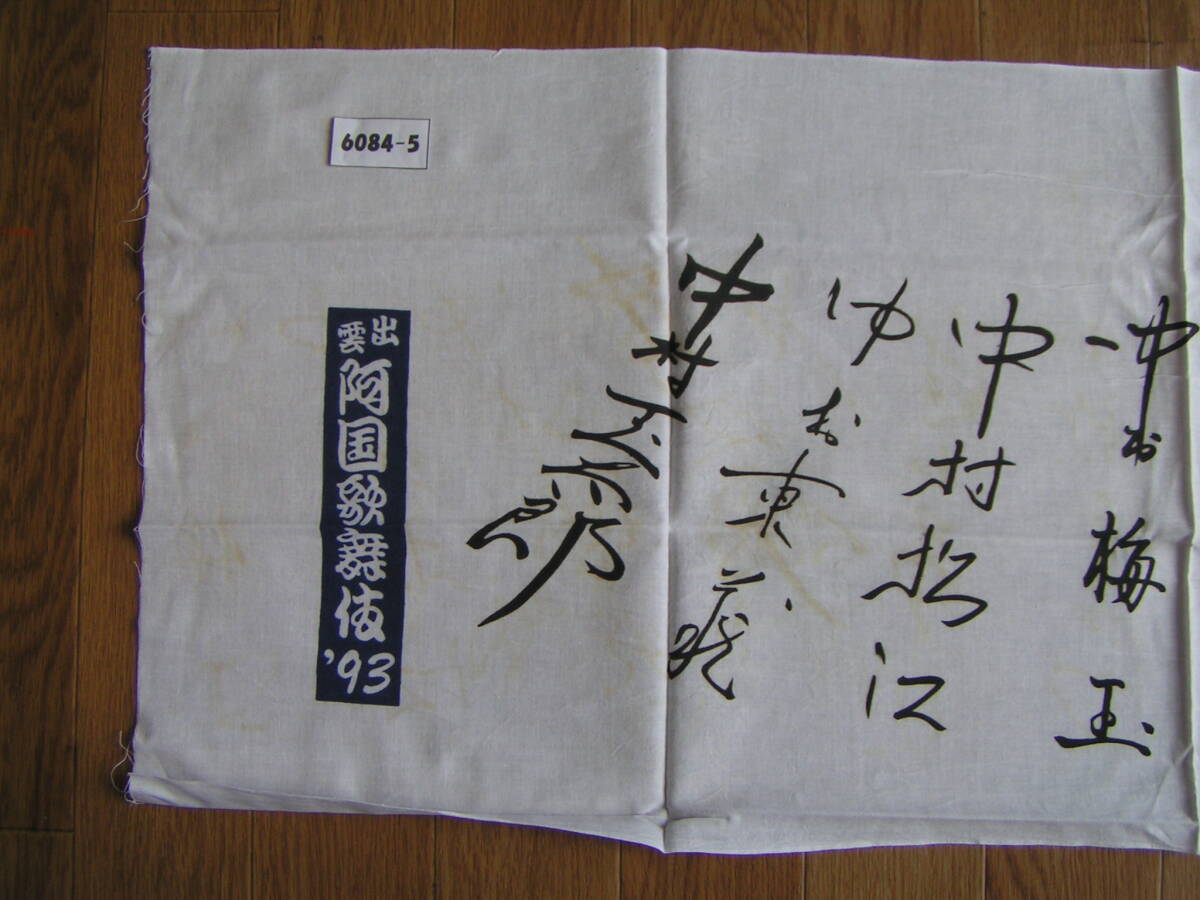 中村梅玉
中村松江
中村東蔵
中村
出雲
阿国歌舞伎
'93
6084-5